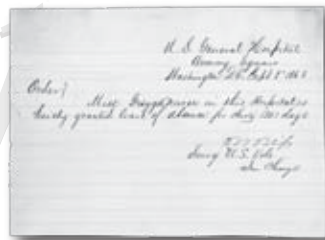 U. S. General Hospital
Armory Square
Washington D.C. Sept 8" 186
Order}
Miss nurse in this Hospital is
hereby granted leave of absence for thirty days
Surg U.S. Vols
In Charge